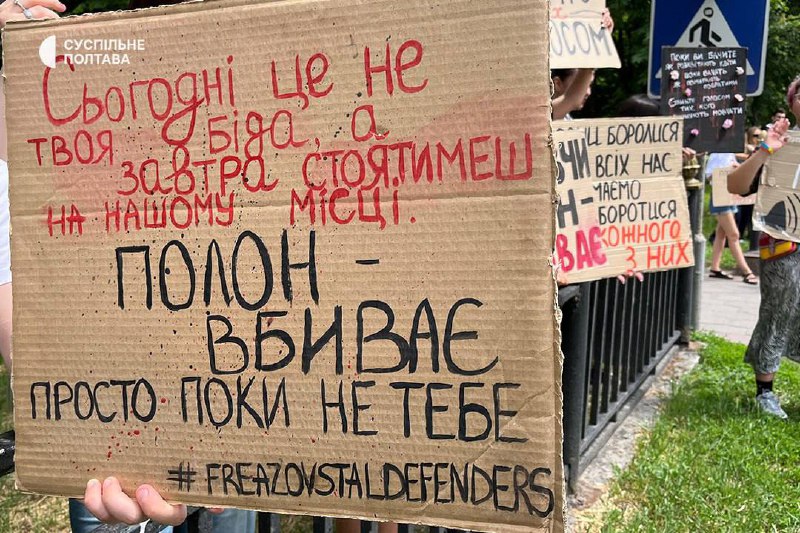 СУСПІЛЬНЕ
ПОЛТАВА
Сьогодні це не
твоя біда, а
завтра стоятимеш
на нашому місці.
ПОЛОН -
ВБИВАЄ
ПРОСТО ПОКИ НЕ ТЕБЕ
#FREAZOVSTALDEFENDERS
ГОЛОСОМ
БОРОЛИСЯ
ВСІХ НАС
МАЄМО
БОРОТИСЯ
КОЖНОГО
З НИХ
ПОКИ ВИ БАЧИТЕ
КВІТИ